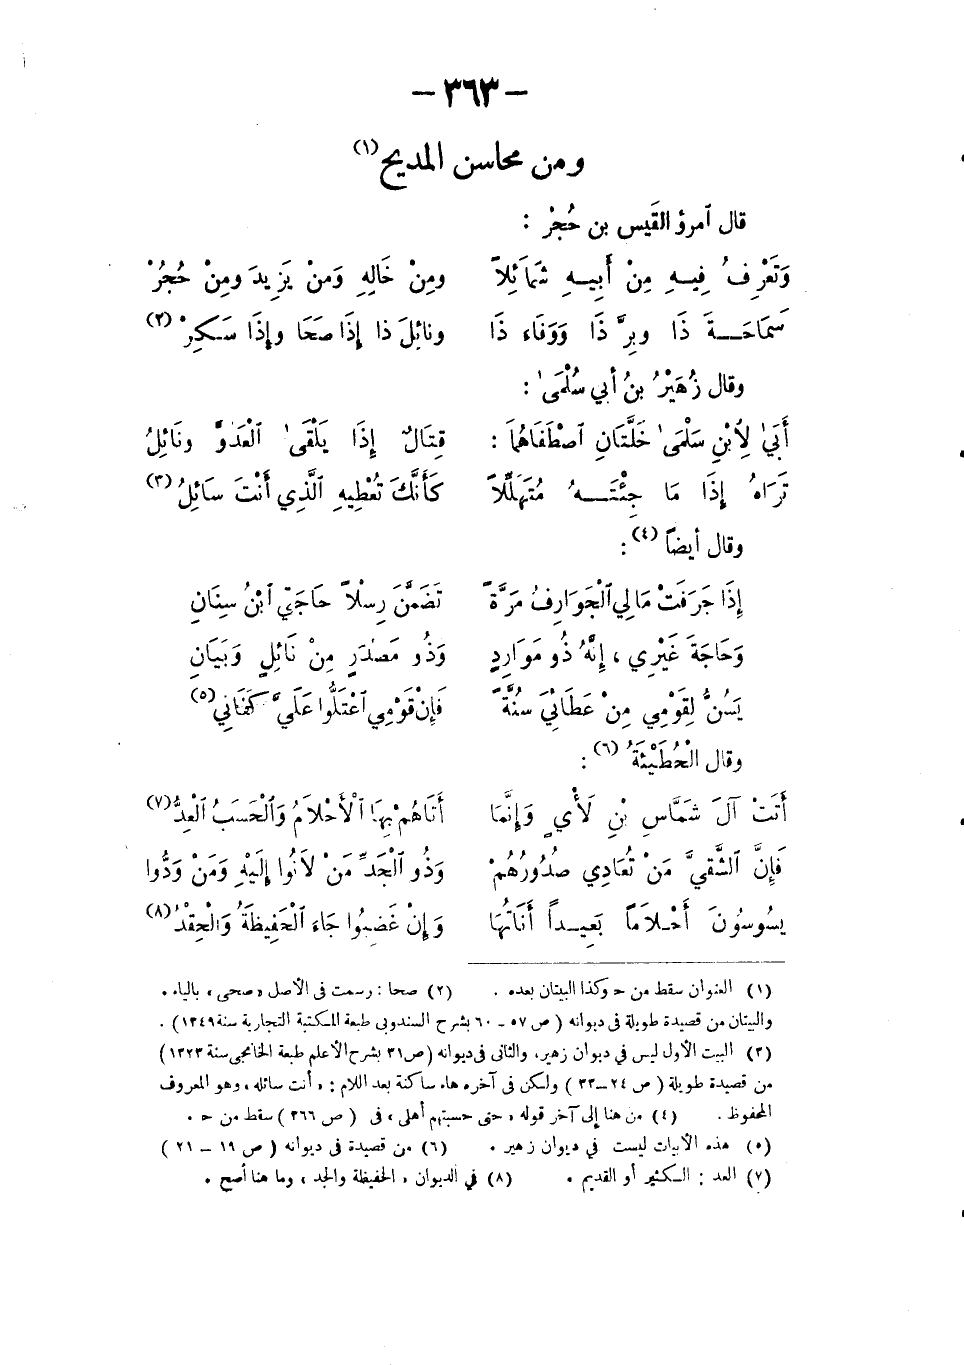 — ٣٦٣ —
ومن محاسن المديح (١)
قال ٱمرؤ القَيس بن حُجْر :
وَتَعْرِفُ فِيهِ مِنْ أَبِيهِ شَمَائِلاً ومِنْ خَالِهِ وَمنْ يَزِيدَ ومِنْ حُجُرْ
سَمَاحَةَ ذَا وبِرَّ ذَا وَوَفَاءَ ذَا ونائِلَ ذا إِذَا صَحَا وإِذَا سَكِرْ (٢)
وقال زُهَيْرُ بنُ أبي سُلْمَىٰ :
أَبَىٰ لِٱبْنِ سَلْمَىٰ خَلَّتَانِ ٱصْطَفَاهُمَا : قِتَالٌ إِذَا يَلْقَىٰ ٱلْعَدُوَّ ونَائِلُ
تَرَاهُ إِذَا مَا جِئْتَهُ مُتَهَلِّلاً كَأَنَّكَ تُعْطِيهِ ٱلَّذِي أَنْتَ سَائِلُ (٣)
وقال أيضاً (٤) :
إِذَا جَرَفَتْ مَالِي ٱلْجَوَارِفُ مَرَّةً تَضَمَّنَ رِسْلاً حَاجَتِي ٱبْنُ سِنَانِ
وَحَاجَةَ غَيْرِي ، إِنَّهُ ذُو مَوَارِدٍ وَذُو مَصْدَرٍ مِنْ نَائِلٍ وَبَيَانِ
يَسُنُّ لِقَوْمِي مِنْ عَطَائِيَ سُنَّةً فَإِنْ قَوْمِي ٱعْتَلُّوا عَلَيَّ كَفَانِي (٥)
وقال الْحُطَيْئَةُ (٦) :
أَتَتْ آلَ شَمَّاسِ بْنِ لَأْيٍ وَإِنَّمَا أَتَاهُمْ بِهَا ٱلْأَحْلَامُ وَٱلْحَسَبُ ٱلْعِدُّ (٧)
فَإِنَّ ٱلشَّقِيَّ مَنْ تُعَادِي صُدُورُهُمْ وَذُو ٱلْجَدِّ مَنْ لَانُوا إِلَيْهِ وَمَنْ وَدُّوا
يَسُوسُونَ أَحْلَاماً بَعِيداً أَنَاتُهَا وَإِنْ غَضِبُوا جَاءَ ٱلْحَفِيظَةُ وَالْحِقْدُ (٨)
(١) العنوان سقط من ح وكذا البيتان بعده . (٢) صحا : رسمت فى الأصل « صحى » بالياء .
والبيتان من قصيدة طويلة فى ديوانه ( ص ٥٧ – ٦٠ بشرح السندوبى طبعة المكتبة التجارية سنة ١٣٤٩ ) .
(٣) البيت الأول ليس في ديوان زهير، والثانى فى ديوانه (ص ٣١ بشرح الأعلم طبعة الخانجى سنة ١٣٢٣ )
من قصيدة طويلة ( ص ٢٤ – ٣٣ ) ولكن فى آخره هاء ساكنة بعد اللام : « أنت سائله » وهو المعروف
المحفوظ . (٤) من هنا إلى آخر قوله « حتى حسبتهم أهلى » فى ( ص ٣٦٦ ) سقط من ح .
(٥) هذه الأبيات ليست في ديوان زهير . (٦) من قصيدة فى ديوانه ( ص ١٩ – ٢١ )
(٧) العد : الكثير أو القديم . (٨) في الديوان « الحفيظة والجد » وما هنا أصح .